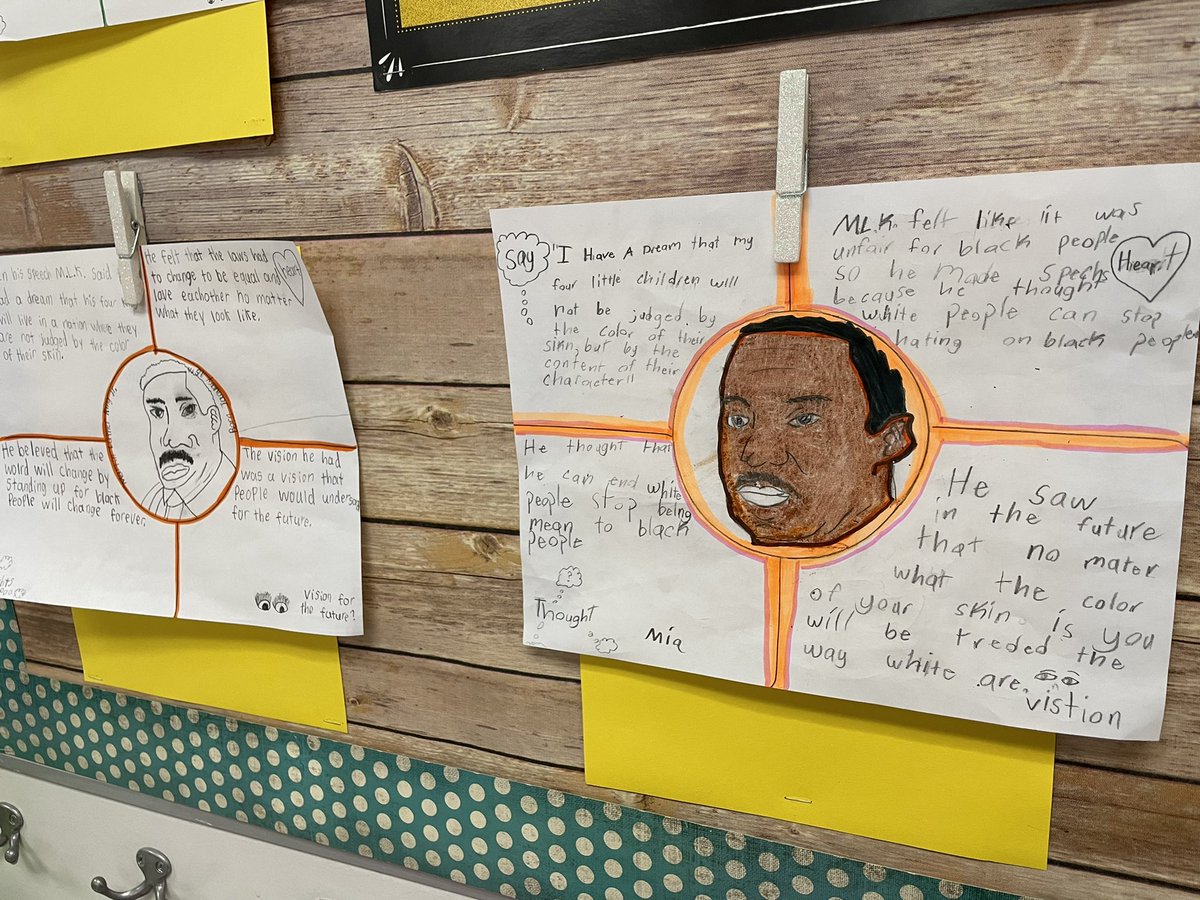 in his speech M.L.K. said
ad a dream that his four k
will live in a nation where they
are not judged by the color
of their skin.
He felt that the laws had
to change to be equal and
love eachother no matter
what they look like.
Heart
He believed that the
world will change by
standing up for black
People will change forever.
The vision he had
was a vision that
People would understang
for the future.
Vision for
the future?
Say
"I Have A Dream that my
four little children will
not be judged by
the color of their
skin, but by the
content of their
character"
M.L.K. felt like iit was
unfair for black people
so he made spechs
because he thought
white people can stop
hating on black people
Heart
He thought that
he can end white
people stop being
mean to black
people
Thought
Mia
He saw
in the future
that no mater
what the color
of your skin is you
will be treded the
way white are.
vistion